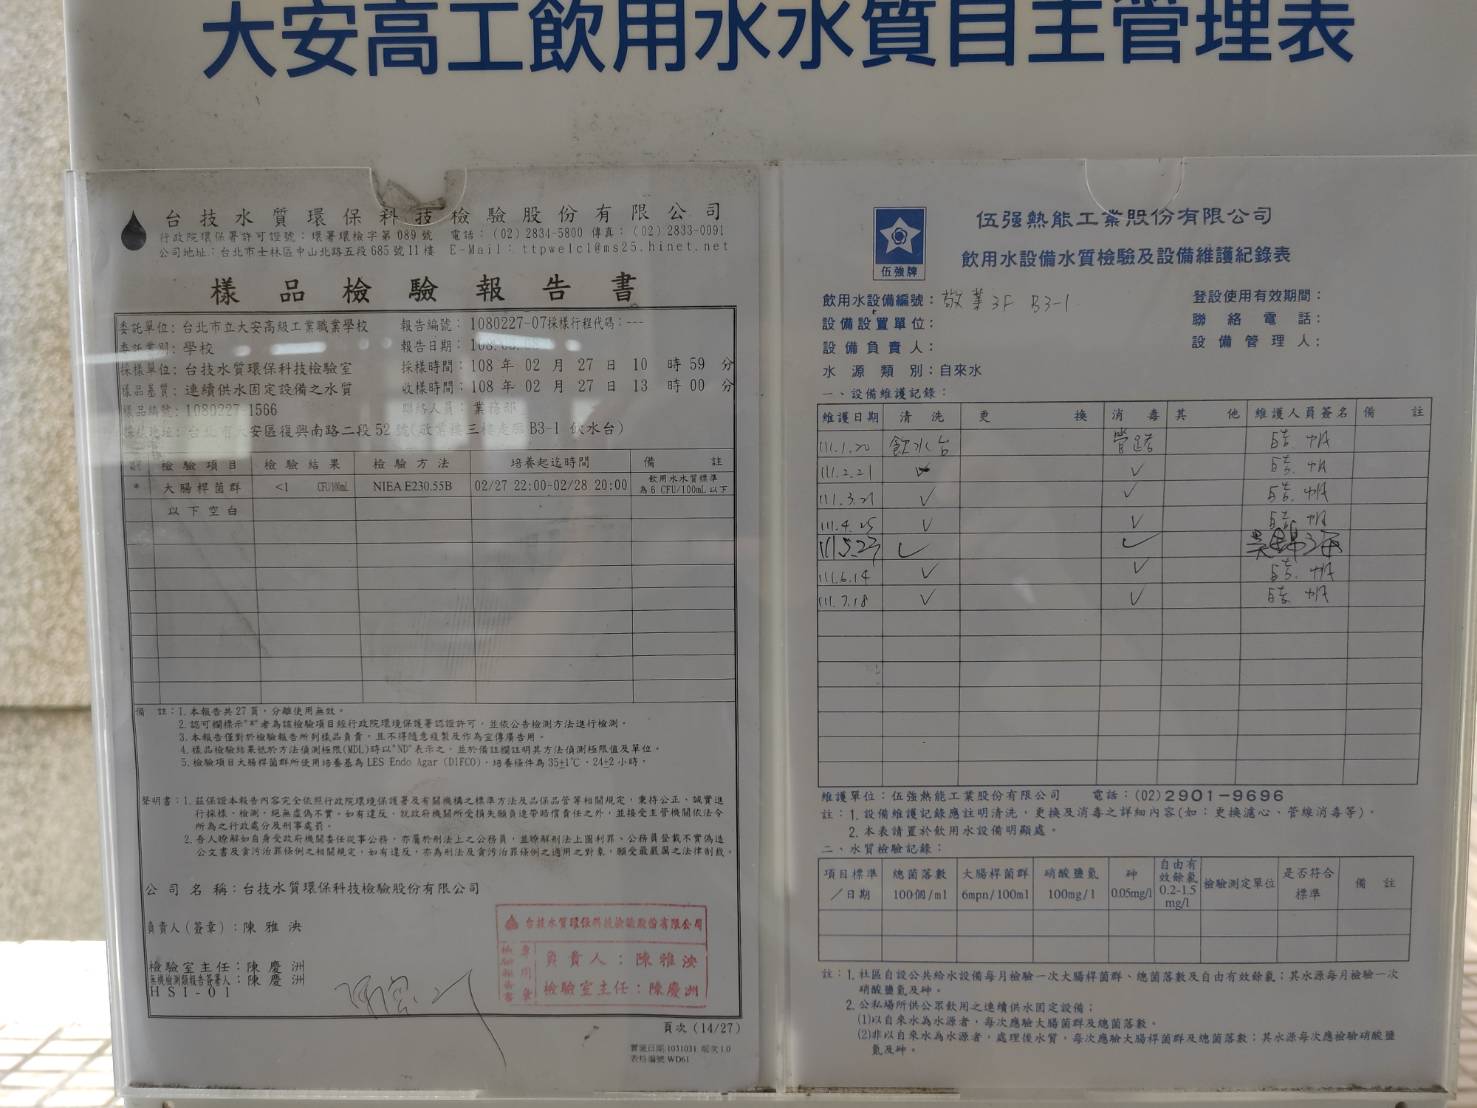 大安高工飲用水水質自主管理表
台技水質環保科技檢驗股份有限公司
行政院環保署許可證號：環署環檢字第 089 號 電話：(02) 2834-5800 傳真：(02) 2833-0091
公司地址：台北市士林區中山北路五段 685 號 11 樓 E-Mail：ttpwelcl@ms25.hinet.net
樣品檢驗報告書
委託單位：台北市立大安高級工業職業學校 報告編號：1080227-07採樣行程代碼：---
委託業別：學校 報告日期：108.
採樣單位：台技水質環保科技檢驗室 採樣時間：108 年 02 月 27 日 10 時 59 分
樣品基質：連續供水固定設備之水質 收樣時間：108 年 02 月 27 日 13 時 00 分
樣品編號：1080227 1566 聯絡人員：業務部
採樣地址：台北市大安區復興南路二段 52 號(敬業樓三樓走廊 B3-1 飲水台)
檢驗項目 檢驗結果 檢驗方法 培養起迄時間 備註
* 大腸桿菌群 <1 CFU/100mL NIEA E230.55B 02/27 22:00-02/28 20:00 飲用水水質標準為 6 CFU/100mL 以下
以下空白
備 註：1.本報告共27頁，分離使用無效。
2.認可欄標示"*"者為該檢驗項目經行政院環境保護署認證許可，並依公告檢測方法進行檢測。
3.本報告僅對於檢驗報告所列樣品負責，且不得隨意複製及作為宣傳廣告用。
4.樣品檢驗結果低於方法偵測極限(MDL)時以"ND"表示之，並於備註欄註明其方法偵測極限值及單位。
5.檢驗項目大腸桿菌群所使用培養基為 LES Endo Agar (DIFCO)，培養條件為 35±1℃、24±2 小時。
聲明書：1.茲保證本報告內容完全依照行政院環境保護署及有關機構之標準方法及品保品管等相關規定，秉持公正、誠實進
行採樣、檢測，絕無虛偽不實，如有違反，就政府機關所受損失願負連帶賠償責任之外，並接受主管機關依法令
所為之行政處分及刑事處罰。
2.吾人瞭解如自身受政府機關委任從事公務，亦屬於刑法上之公務員，並瞭解刑法上圖利罪、公務員登載不實偽造
公文書及貪污治罪條例之相關規定，如有違反，亦為刑法及貪污治罪條例之適用之對象，願受最嚴厲之法律制裁。
公 司 名 稱：台技水質環保科技檢驗股份有限公司
負責人(簽章)：陳 雅 泱
檢驗室主任：陳 慶 洲
無機檢測類報告簽署人：陳 慶 洲
HSI-01
台技水質環保科技檢驗股份有限公司
檢驗報告書專用章
負責人：陳雅泱
檢驗室主任：陳慶洲
頁次 (14/27)
實施日期:1031031 版次:1.0
表格編號:WD61
伍强熱能工業股份有限公司
伍強牌
飲用水設備水質檢驗及設備維護紀錄表
飲用水設備編號：敬業3F B3-1 登設使用有效期間：
設備設置單位： 聯絡電話：
設備負責人： 設備管理人：
水源類別：自來水
一、設備維護記錄：
維護日期 清洗 更換 消毒 其他 維護人員簽名 備註
111.1.20 飲水台 管路
111.2.21 ✓ ✓
111.3.21 ✓ ✓
111.4.25 ✓ ✓
111.5.23 ✓ ✓
111.6.14 ✓ ✓
111.7.18 ✓ ✓
維護單位：伍強熱能工業股份有限公司 電話：(02)2901-9696
註：1.設備維護記錄應註明清洗，更換及消毒之詳細內容(如：更換濾心、管線消毒等)。
2.本表請置於飲用水設備明顯處。
二、水質檢驗記錄：
項目標準／日期 總菌落數 100個/ml 大腸桿菌群 6mpn/100ml 硝酸鹽氮 100mg/l 砷 0.05mg/l 自由有效餘氯 0.2-1.5 mg/l 檢驗測定單位 是否符合標準 備註
註：1.社區自設公共給水設備每月檢驗一次大腸桿菌群、總菌落數及自由有效餘氯；其水源每月檢驗一次
硝酸鹽氮及砷。
2.公私場所供公眾飲用之連續供水固定設備；
(1)以自來水為水源者，每次應驗大腸菌群及總菌落數。
(2)非以自來水為水源者，處理後水質，每次應驗大腸桿菌群及總菌落數；其水源每次應檢驗硝酸鹽
氮及砷。